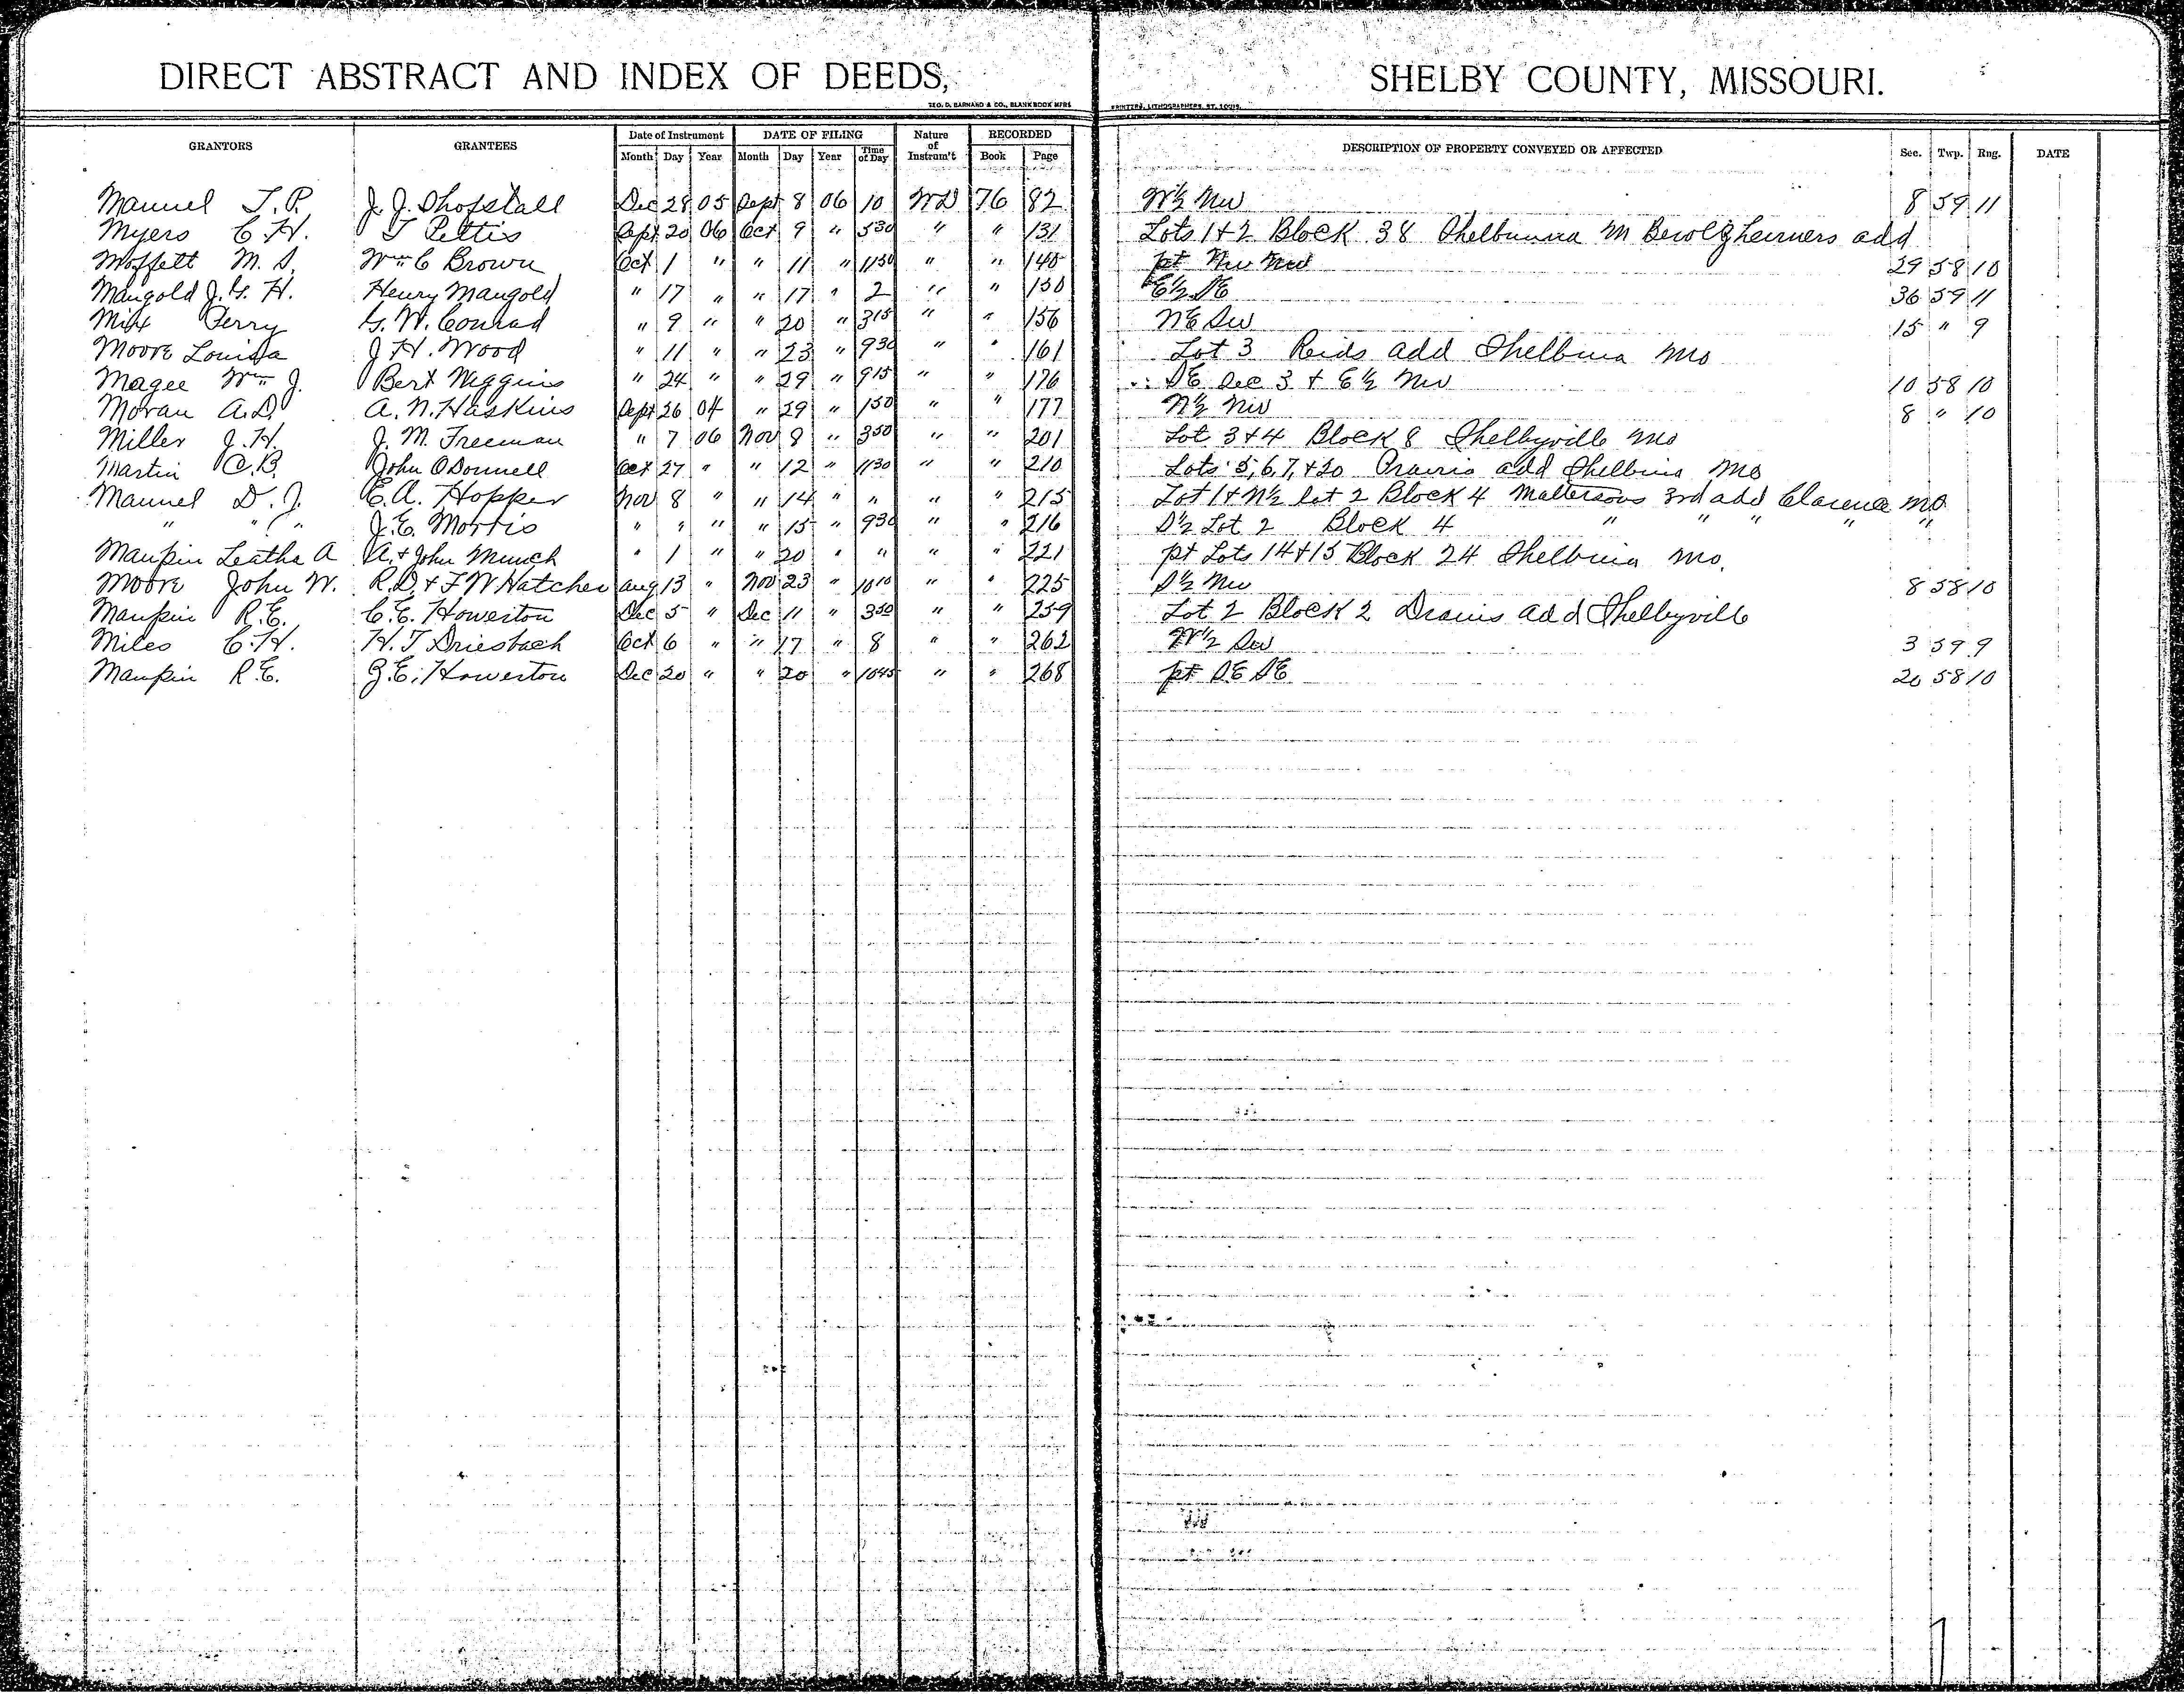 DIRECT ABSTRACT AND INDEX OF DEEDS, SHELBY COUNTY, MISSOURI.
GEO. D. BARNARD & CO., BLANK BOOK MFRS PRINTERS, LITHOGRAPHERS, ST. LOUIS.
GRANTORS GRANTEES Date of Instrument DATE OF FILING Nature of Instrum't RECORDED DESCRIPTION OF PROPERTY CONVEYED OR AFFECTED Sec. Twp. Rng. DATE
Month Day Year Month Day Year Time of Day Book Page
Manuel T. P. J. J. Shofstall Dec 28 05 Sept 8 06 10 WD 76 82 W½ NW 8 59 11
Myers C. H. T Pettis Sept 20 06 Oct 9 " 530 " " 131 Lots 1 & 2 Block 38 add
Moffett M. S. Wm C Brown Oct 1 " " 11 " 1130 " " 140 pt NW NW 29 58 10
Mangold J. G. H. Henry Mangold " 17 " " 17 " 2 " " 150 E½ SE 36 59 11
Mix Perry G. W. Conrad " 9 " " 20 " 315 " " 156 NE SW 15 " 9
Moore Louisa J. H. Wood " 11 " " 23 " 930 " " 161 Lot 3 Reids add Shelbina Mo
Magee Wm J. Bert Wiggins " 24 " " 29 " 915 " " 176 SE Sec 3 & E½ NW 10 58 10
Moran A. D. A. N. Haskins Sept 26 04 " 29 " 150 " " 177 N½ NW 8 " 10
Miller J. H. J. M. Freeman " 7 06 Nov 8 " 350 " " 201 Lot 3 & 4 Block 8 Shelbyville Mo
Martin C. B. John O Donnell Oct 27 " " 12 " 1130 " " 210 Lots 5, 6, 7, & 20 Prairie add Shelbina Mo
Manuel D. J. E. A. Hopper Nov 8 " " 14 " " " " 215 Lot 1 & N½ lot 2 Block 4 Mattersons 3rd add Clarence Mo
" " " J. E. Morris " " " " 15 " 930 " " 216 S½ Lot 2 Block 4 " " " " "
Maupin Leatha A A. & John Munch " 1 " " 20 " " " " 221 pt Lots 14 & 15 Block 24 Shelbina Mo.
Moore John W. R. D. & F W Hatcher Aug 13 " Nov 23 " 1010 " " 225 S½ NW 8 58 10
Maupin R. E. C. E. Howerton Dec 5 " Dec 11 " 350 " " 259 Lot 2 Block 2 add Shelbyville
Miles C. H. H. T Driesbach Oct 6 " " 17 " 8 " " 262 W½ SW 3 59 9
Maupin R. E. G. E. Howerton Dec 20 " " 20 " 1045 " " 268 pt SE SE 20 58 10